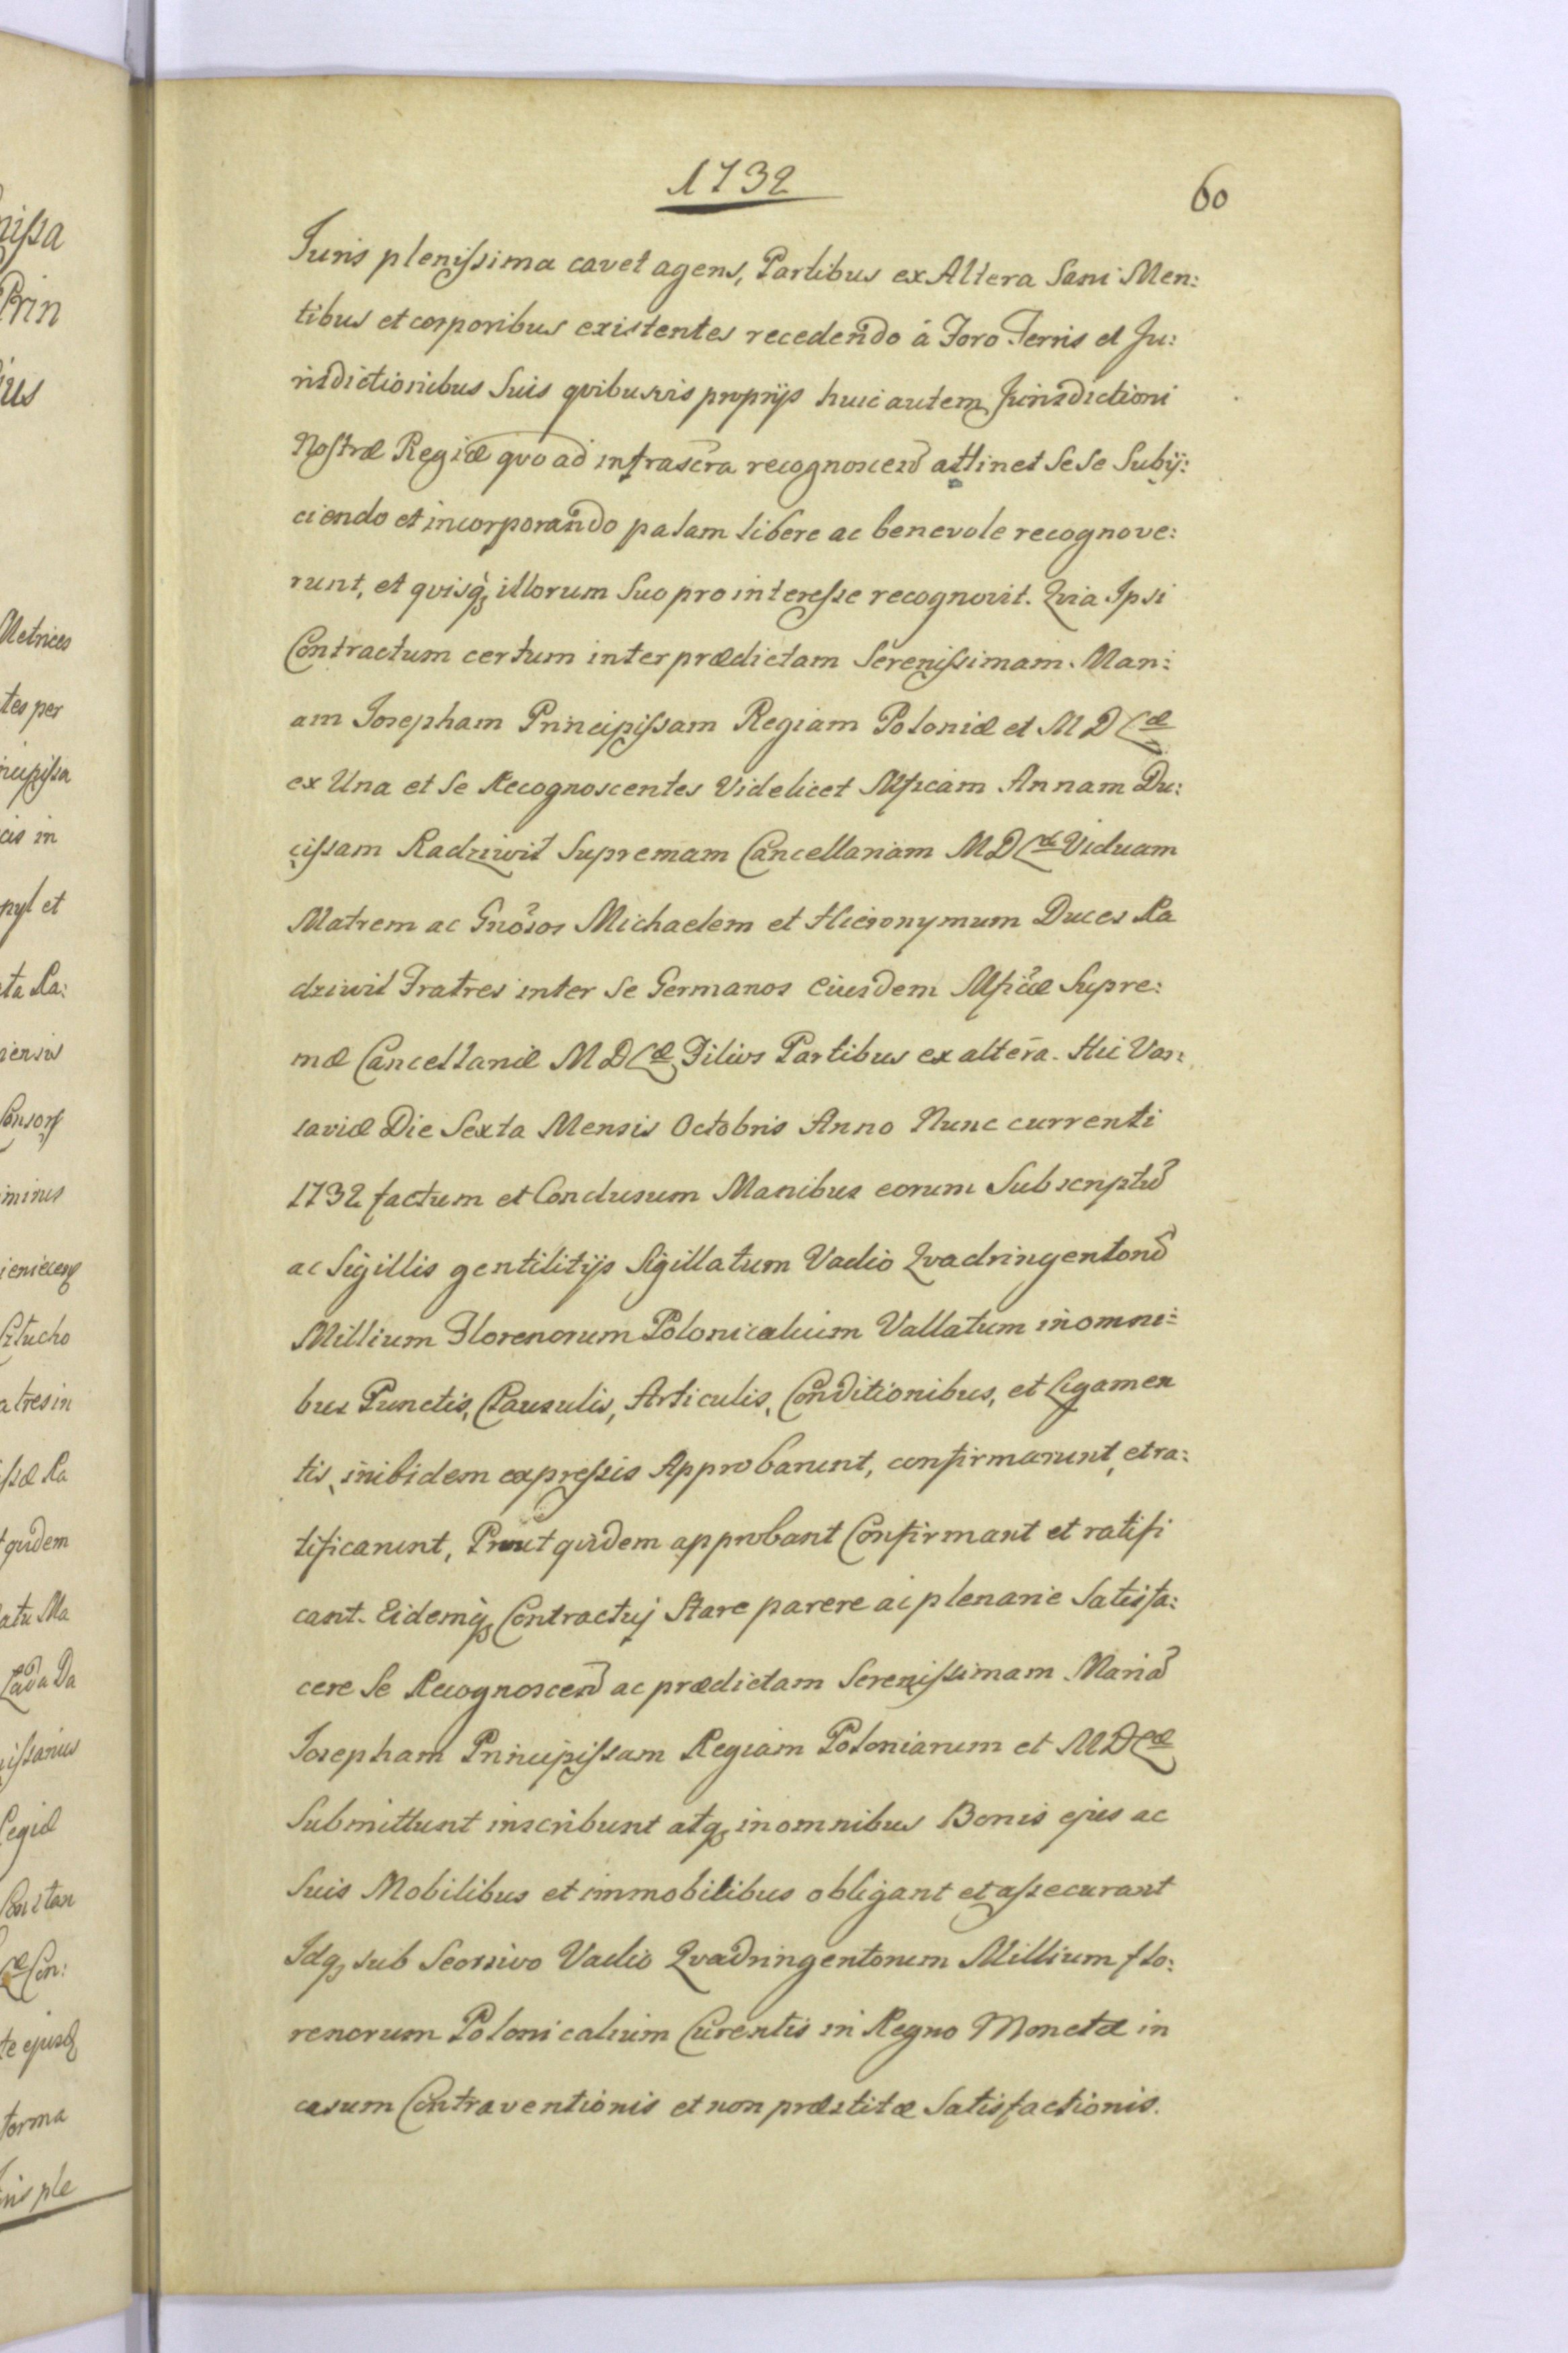 1732
60
Juris plenissima cavet agens, Partibus ex Altera Sani Men:
tibus et corporibus existentes recedendo á Foro Terris et Ju:
risdictionibus Suis qvibusvis proprijs huic autem Jurisdictioni
Nostræ Regiæ qvo ad infrascra recognoscend attinet Se Se Subij:
ciendo et incorporando palam libere ac benevole recognove:
runt, et qvisq, illorum Suo pro interesse recognovit. Qvia Ipsi
Contractum certum inter prædictam Serenissimam Mari:
am Josepham Principissam Regiam Poloniæ et M D Cæ
ex Una et Se Recognoscentes Videlicet Mficam Annam Du:
cissam Radziwił Supremam Cancellariam MDCæ Viduam
Matrem ac Gnosos Michaelem et Hieronymum Duces Ra
dziwił Fratres inter Se Germanos Eiusdem Mficæ Supre:
mæ Cancellariæ M D Cæ Filios Partibus ex altera. Hic Var:
saviæ Die Sexta Mensis Octobris Anno Nunc currenti
1732 factum et Conclusum Manibus eorum Subscriptu
ac Sigillis gentilitijs Sigillatum Vadio Qvadringentoru
Millium Florenorum Polonicalium Vallatum in omni:
bus Punctis, Clausulis, Articulis, Conditionibus, et Ligamen
tis, inibidem expressis Approbarunt, confirmarunt, et ra:
tificarunt, Prout qvidem approbant Confirmant et ratifi
cant. Eidemq, Contractuj Stare parere ac plenarie Satisfa:
cere Se Recognoscend ac prædictam Serenissimam Maria
Josepham Principissam Regiam Poloniarum et MDCæ
Submittunt inscribunt atq, in omnibus Bonis ejus ac
Suis Mobilibus et immobilibus obligant et assecurant
Idq, sub Seorsivo Vadio Qvadringentorum Millium flo:
renorum Polonicalium Curentis in Regno Monetæ in
casum Contraventionis et non præstitæ Satisfactionis.